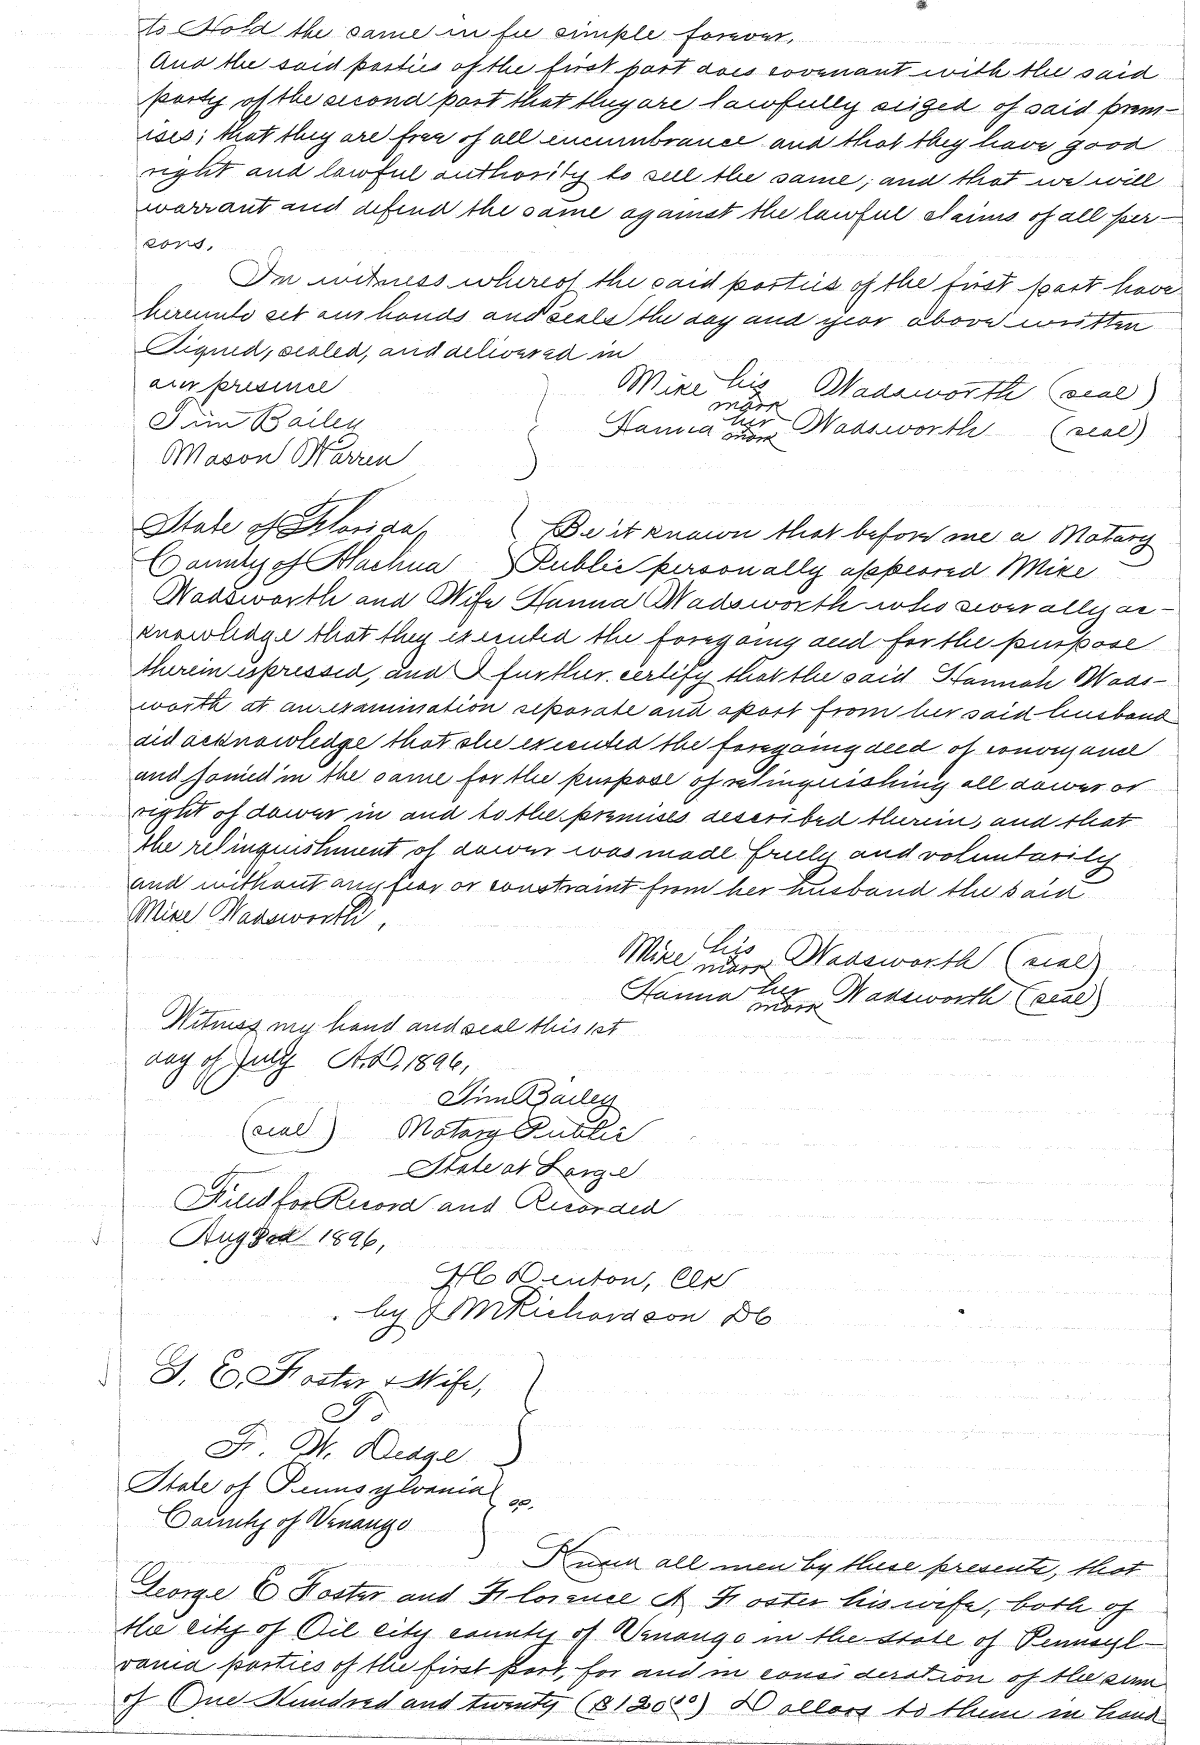 to Hold the same in fee simple forever.
And the said parties of the first part does covenant with the said
party of the second part that they are lawfully seized of said prem-
ises; that they are free of all encumbrance and that they have good
right and lawful authority to sell the same; and that we will
warrant and defend the same against the lawful claims of all per-
sons.
In witness whereof the said parties of the first part have
hereunto set our hands and seals the day and year above written
Signed, sealed, and delivered in
our presence
Mike his mark Wadsworth (seal)
Tim Bailey
Hanna her mark Wadsworth (seal)
Mason Warren
State of Florida, Be it known that before me a Notary
County of Alachua Public personally appeared Mike
Wadsworth and Wife Hanna Wadsworth who severally ac-
knowledge that they executed the foregoing and for the purpose
therein expressed, and I further certify that the said Hannah Wads-
worth at an examination separate and apart from her said husband
did acknowledge that she executed the foregoing deed of conveyance
and joined in the same for the purpose of relinquishing all dower or
right of dower in and to the premises described therein, and that
the relinquishment of dower was made freely and voluntarily
and without any fear or constraint from her husband the said
Mike Wadsworth,
Mike his mark Wadsworth (seal)
Hanna her mark Wadsworth (seal)
Witness my hand and seal this 1st
day of July A.D. 1896,
Tim Bailey
(seal) Notary Public
State at Large
Filed for Record and Recorded
Aug 1896,
H C Denton, Clk
by J M Richardson DC
G. E. Foster & Wife,
To
F. W. Dedge
State of Pennsylvania ss.
County of Venango
Know all men by these presents, that
George E Foster and Florence A Foster his wife, both of
the city of Oil city county of Venango in the state of Pennsyl-
vania parties of the first part, for and in consideration of the sum
of One Hundred and twenty ($120.00) Dollars to them in hand